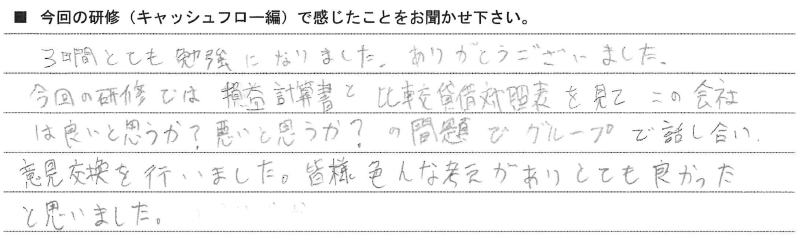 ■ 今回の研修（キャッシュフロー編）で感じたことをお聞かせ下さい。
3日間とても勉強になりました。ありがとうございました。
今回の研修では損益計算書と比較貸借対照表を見てこの会社
は良いと思うか？悪いと思うか？の問題でグループで話し合い、
意見交換を行いました。皆様色んな考えがありとても良かった
と思いました。